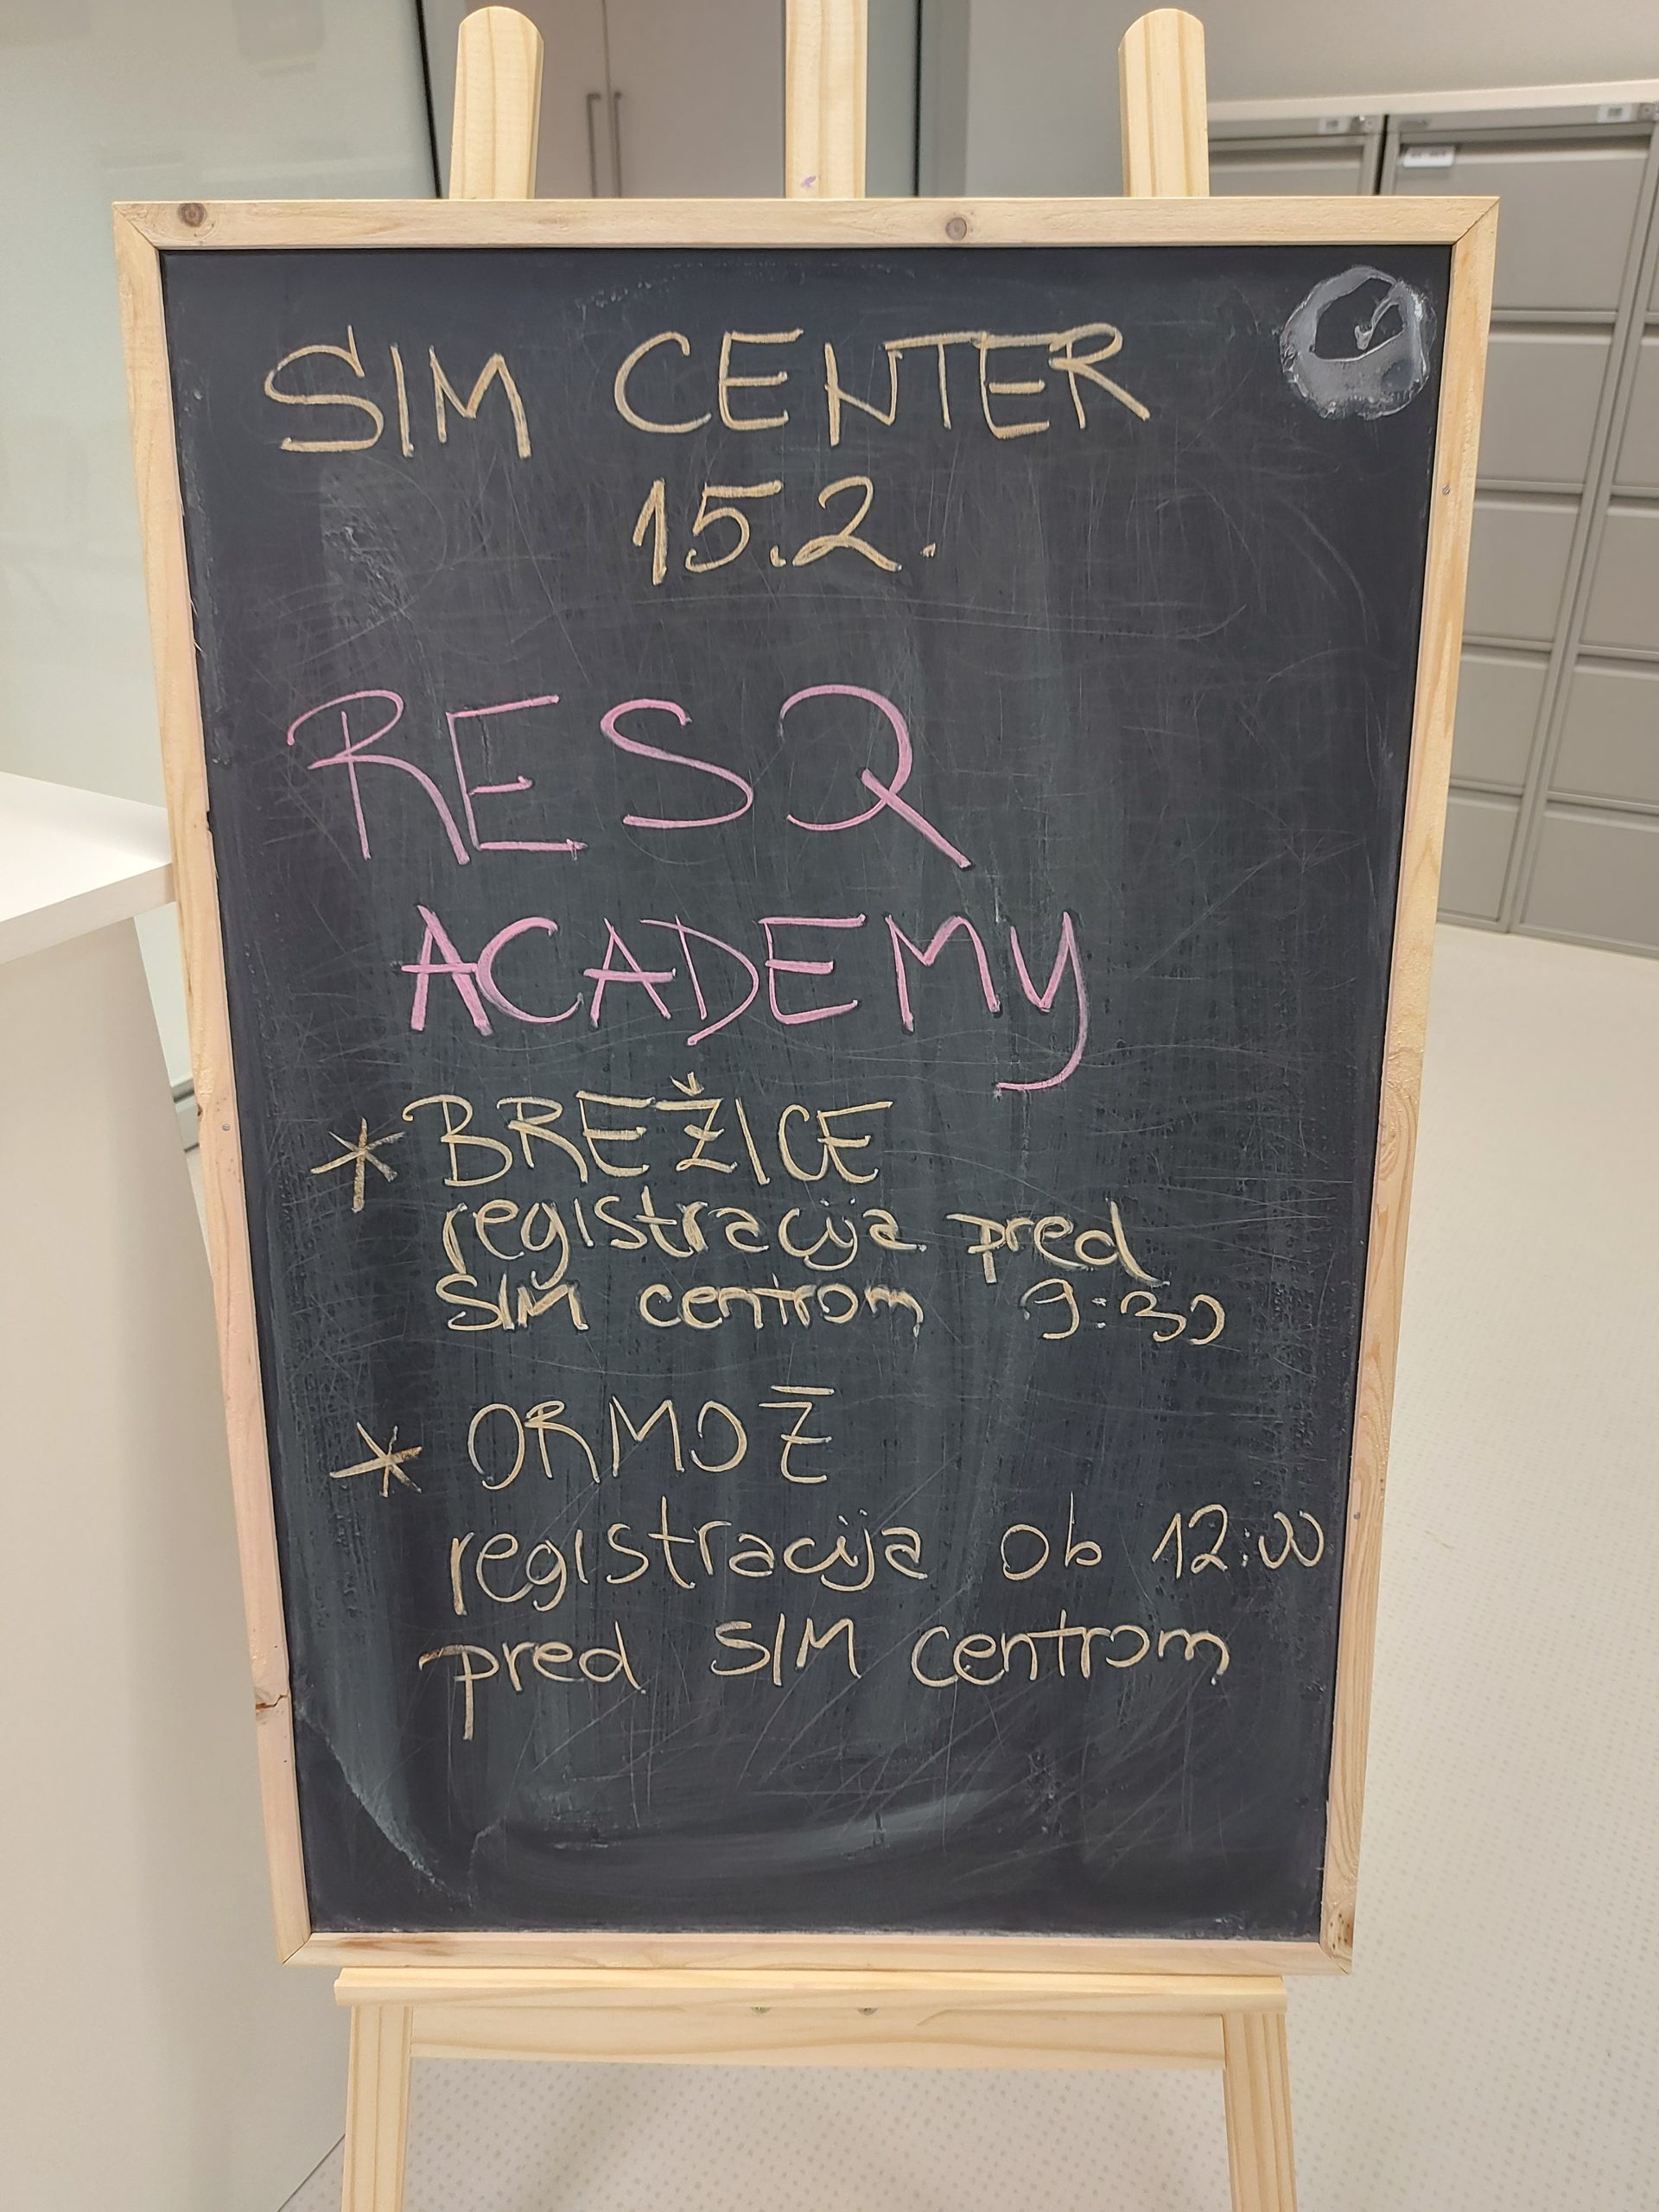 SIM CENTER
15.2.
RES Q
ACADEMY
* BREŽICE
registracija pred
SIM centrom 9:30
* ORMOŽ
registracija ob 12:00
pred SIM centrom